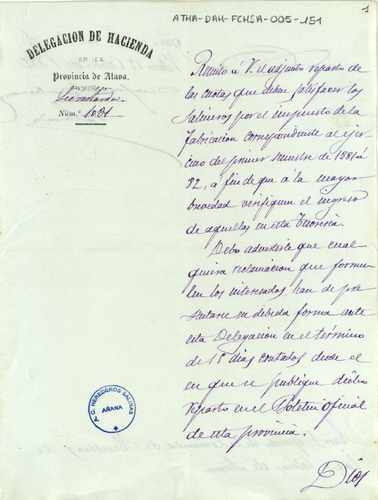 ATHA-DAH-FCHSA-005-151
1
DELEGACION DE HACIENDA
EN LA
Provincia de Alava.
Núm.° 1081
Remito á V. el adjunto reparto de
las cuotas que deben satisfacer los
Salineros por el impuesto de la
fabricacion correspondiente al ejer-
cicio del primer semestre de 1881 á
82, á fin de que á la mayor
brevedad verifiquen el ingreso
de aquellas en esta Tesoreria.
Debo advertirle que cual-
quiera reclamacion que formu-
len los interesados, han de pre-
sentarse en debida forma ante
esta Delegacion en el término
de 15 dias contados desde el
en que se publique dicho
reparto en el Boletin oficial
de esta provincia.
Dios
A.C. HEREDEROS SALINAS
AÑANA